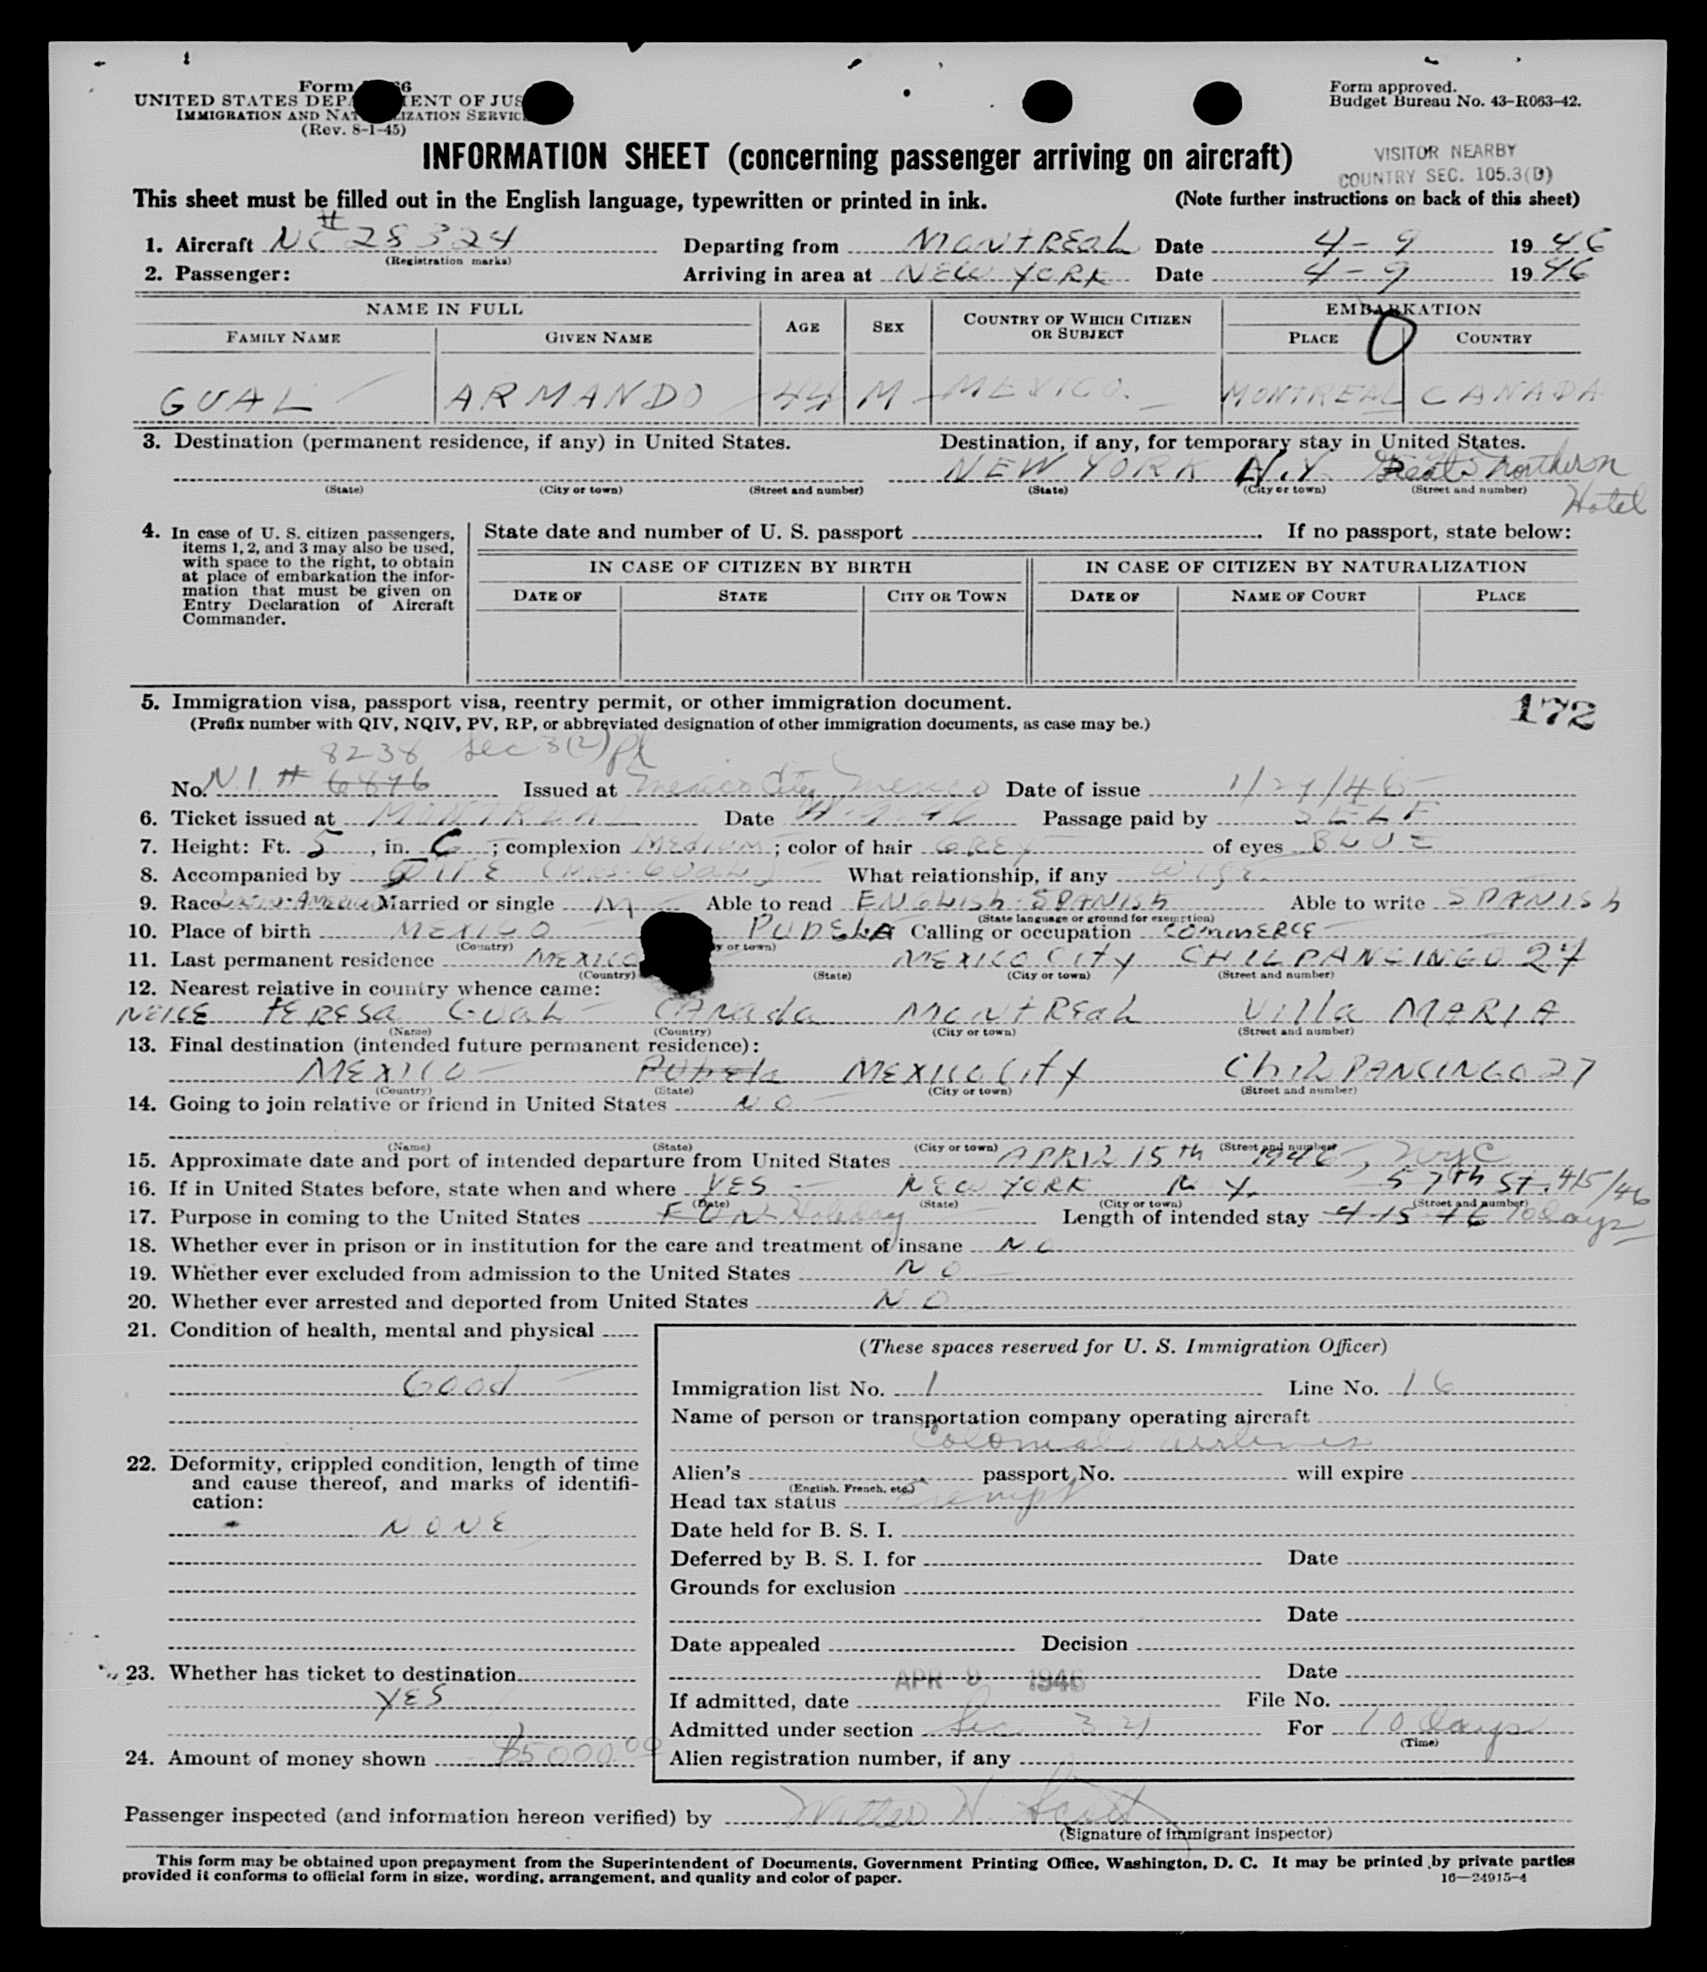 Form
UNITED STATES DEPARTMENT OF JUSTICE
IMMIGRATION AND NATURALIZATION SERVICE
(Rev. 8-1-45)
Form approved.
Budget Bureau No. 43-R063-42.
INFORMATION SHEET (concerning passenger arriving on aircraft)
VISITOR NEARBY
COUNTRY SEC. 105.3(D)
This sheet must be filled out in the English language, typewritten or printed in ink. (Note further instructions on back of this sheet)
1. Aircraft NC # 28324 Departing from MONTREAL Date 4-9 1946
(Registration marks)
2. Passenger: Arriving in area at NEW YORK Date 4-9 1946
NAME IN FULL AGE SEX COUNTRY OF WHICH CITIZEN OR SUBJECT EMBARKATION
FAMILY NAME GIVEN NAME PLACE COUNTRY
GUAL ARMANDO 44 M MEXICO. MONTREAL CANADA
3. Destination (permanent residence, if any) in United States. Destination, if any, for temporary stay in United States.
NEW YORK N.Y. Great Northern Hotel
(State) (City or town) (Street and number) (State) (City or town) (Street and number)
4. In case of U. S. citizen passengers, items 1, 2, and 3 may also be used, with space to the right, to obtain at place of embarkation the information that must be given on Entry Declaration of Aircraft Commander.
State date and number of U. S. passport If no passport, state below:
IN CASE OF CITIZEN BY BIRTH IN CASE OF CITIZEN BY NATURALIZATION
DATE OF STATE CITY OR TOWN DATE OF NAME OF COURT PLACE
5. Immigration visa, passport visa, reentry permit, or other immigration document. 172
(Prefix number with QIV, NQIV, PV, RP, or abbreviated designation of other immigration documents, as case may be.)
8238 Sec 3(2)
No. N.I. # 6876 Issued at Mexico City, Mexico Date of issue
6. Ticket issued at MONTREAL Date 4-9-46 Passage paid by SELF
7. Height: Ft. 5, in. 6; complexion Medium; color of hair GREY of eyes BLUE
8. Accompanied by WIFE (Mrs. GUAL) What relationship, if any Wife
9. Race Latin-American Married or single M Able to read ENGLISH-SPANISH Able to write SPANISH
(State language or ground for exemption)
10. Place of birth MEXICO PUDELA Calling or occupation COMMERCE
(Country) (City or town)
11. Last permanent residence MEXICO MEXICO CITY CHILPANCINGO 27
(Country) (State) (City or town) (Street and number)
12. Nearest relative in country whence came:
NEICE TERESA GUAL CANADA MONTREAL Villa MARIA
(Name) (Country) (City or town) (Street and number)
13. Final destination (intended future permanent residence):
MEXICO Pubela MEXICO CITY CHILPANCINGO 27
(Country) (State) (City or town) (Street and number)
14. Going to join relative or friend in United States NO
(Name) (State) (City or town) (Street and number)
15. Approximate date and port of intended departure from United States APRIL 15th 1946, NYC
16. If in United States before, state when and where YES NEW YORK N.Y. 57th St. 4/5/46
(Date) (State) (City or town) (Street and number)
17. Purpose in coming to the United States FUN Holiday Length of intended stay 4-15-46 10 Days
18. Whether ever in prison or in institution for the care and treatment of insane NO
19. Whether ever excluded from admission to the United States NO
20. Whether ever arrested and deported from United States NO
21. Condition of health, mental and physical
Good
22. Deformity, crippled condition, length of time and cause thereof, and marks of identification:
NONE
23. Whether has ticket to destination
YES
24. Amount of money shown $5000.00
(These spaces reserved for U. S. Immigration Officer)
Immigration list No. 1 Line No. 16
Name of person or transportation company operating aircraft
Colonial Airlines
Alien's passport No. will expire
(English, French, etc.)
Head tax status Exempt
Date held for B. S. I.
Deferred by B. S. I. for Date
Grounds for exclusion
Date
Date appealed Decision
Date
APR 9 1946
If admitted, date File No.
Admitted under section Sec. 3 2) For 10 Days
(Time)
Alien registration number, if any
Passenger inspected (and information hereon verified) by
(Signature of immigrant inspector)
This form may be obtained upon prepayment from the Superintendent of Documents, Government Printing Office, Washington, D. C. It may be printed by private parties
provided it conforms to official form in size, wording, arrangement, and quality and color of paper. 16—24915-4